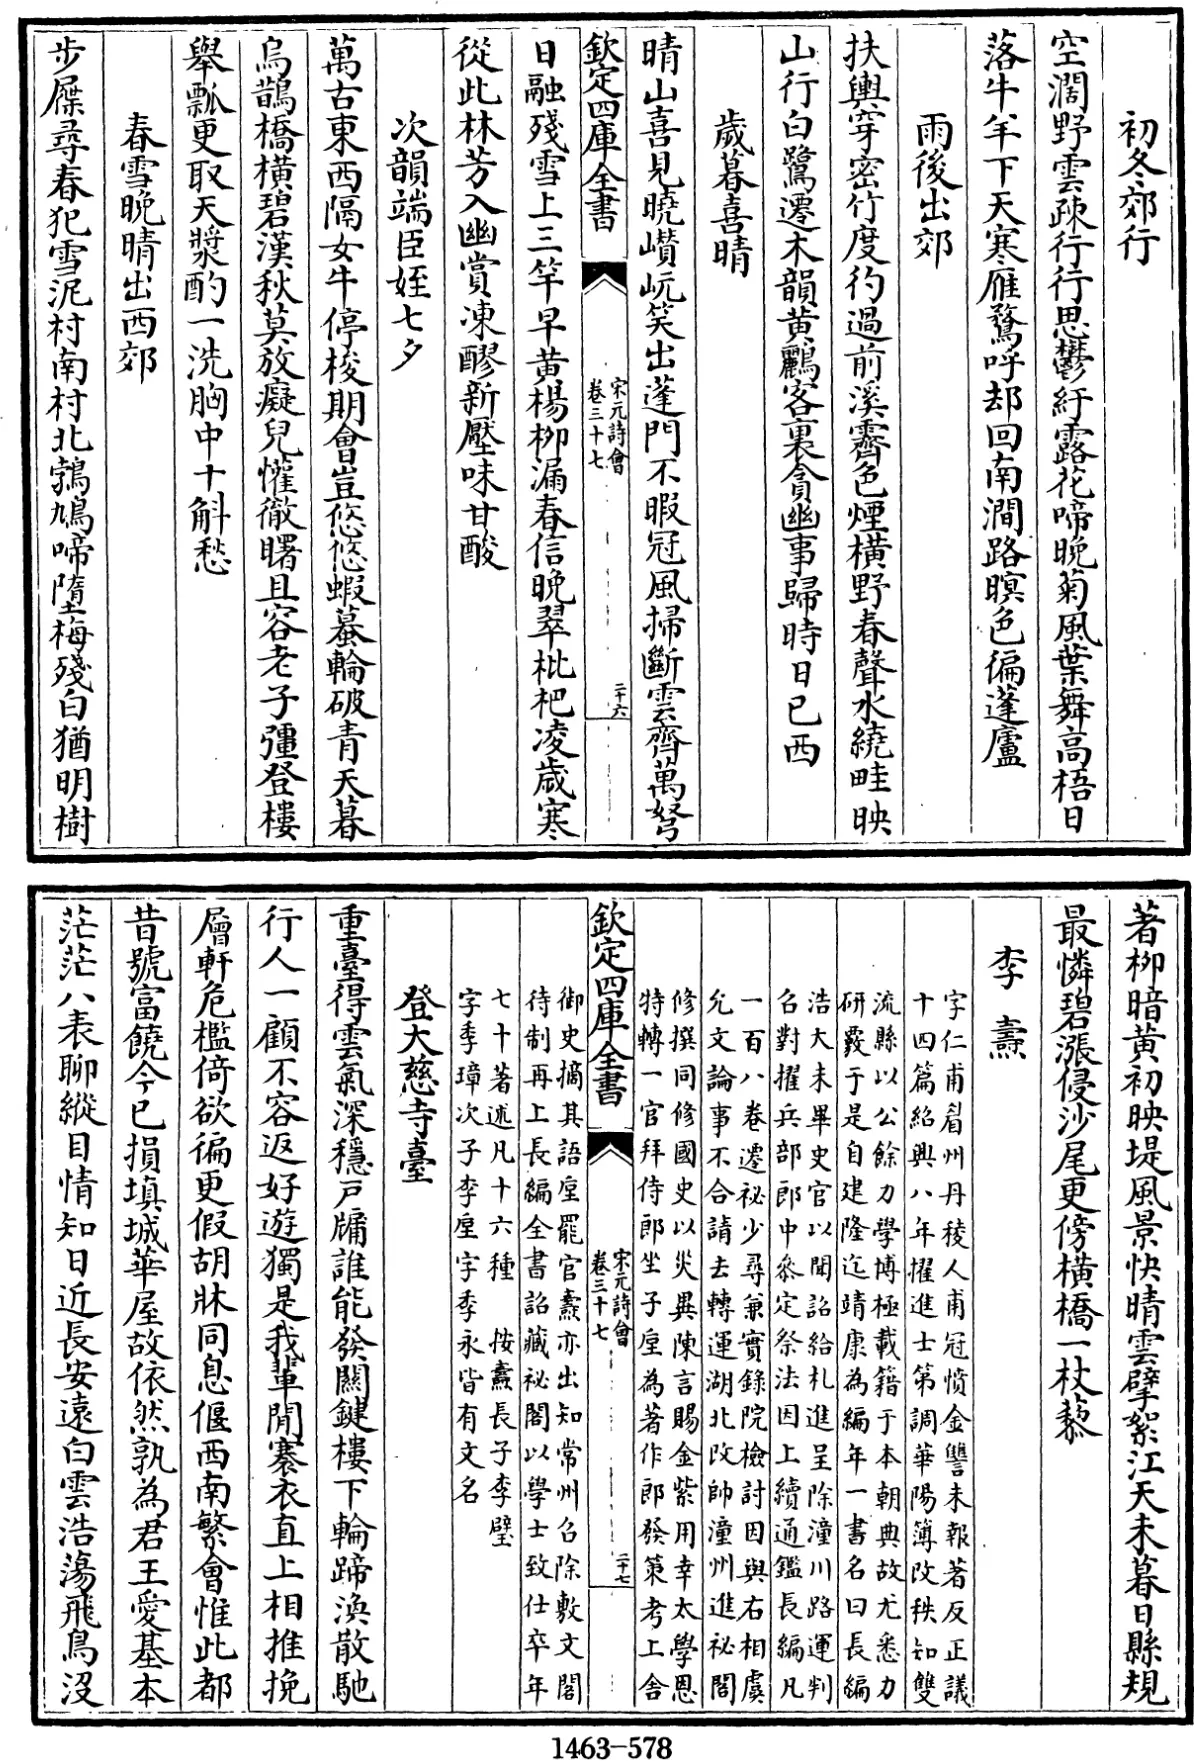 初冬郊行
空濶野雲疎行行思鬱紆露花啼晩菊風葉舞高梧日
落牛羊下天寒雁鶩呼却回南澗路暝色徧蓬廬
雨後出郊
扶輿穿密竹度彴過前溪霽色煙橫野春聲水繞畦映
山行白鷺遷木韻黄鸝客裏貪幽事歸時日已西
歲暮喜晴
晴山喜見曉巑岏笑出蓬門不暇冠風掃斷雲齊萬弩
欽定四庫全書
宋元詩會
卷三十七
二十六
日融殘雪上三竿早黄楊柳漏春信晩翠枇杷凌歲寒
從此林芳入幽賞凍醪新壓味甘酸
次韻端臣姪七夕
萬古東西隔女牛停梭期會豈悠悠蝦蟇輪破青天暮
烏鵲橋橫碧漢秋莫放癡兒懽徹曙且容老子彊登樓
舉瓢更取天漿酌一洗胸中十斛愁
春雪晩晴出西郊
步屧尋春犯雪泥村南村北鵓鳩啼墮梅殘白猶明樹
著柳暗黄初映堤風景快晴雲擘絮江天未暮日縣規
最憐碧漲侵沙尾更傍橫橋一杖藜
李燾
字仁甫眉州丹稜人甫冠憤金讐未報著反正議
十四篇紹興八年擢進士第調華陽簿改秩知雙
流縣以公餘力學博極載籍于本朝典故尤悉力
研覈于是自建隆迄靖康為編年一書名曰長編
浩大未畢史官以聞詔給札進呈除潼川路運判
召對擢兵部郎中叅定祭法因上續通鑑長編凡
一百八卷遷祕少尋兼實錄院檢討因與右相虞
允文論事不合請去轉運湖北改帥潼州進祕閣
修撰同修國史以災異陳言賜金紫用幸太學恩
特轉一官拜侍郎坐子垕為著作郎發策考上舍
欽定四庫全書
宋元詩會
卷三十七
二十七
御史摘其語垕罷官燾亦出知常州召除敷文閣
待制再上長編全書詔藏祕閣以學士致仕卒年
七十著述凡十六種　按燾長子李壁
字季璋次子李垕字季永皆有文名
登大慈寺臺
重臺得雲氣深穩戸牖誰能發關鍵樓下輪蹄渙散馳
行人一顧不容返好遊獨是我輩閒褰衣直上相推挽
層軒危檻倚欲徧更假胡牀同息偃西南繁會惟此都
昔號富饒今已損填城華屋故依然孰為君王愛基本
茫茫八表聊縱目情知日近長安遠白雲浩蕩飛鳥沒
1463-578